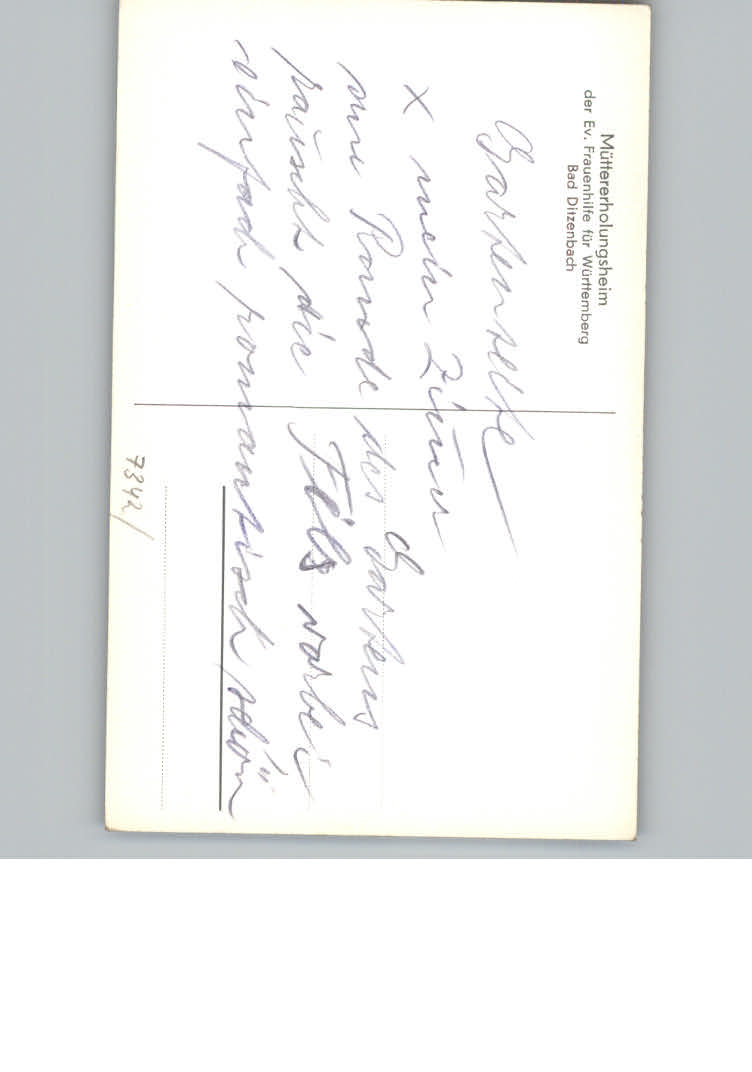 Müttererholungsheim
der Ev. Frauenhilfe für Württemberg
Bad Ditzenbach
Gartenseite
x mein Zim̄er
am Rande des Gartens
rauscht die Fils vorbei
einfach romantisch schön
7342/